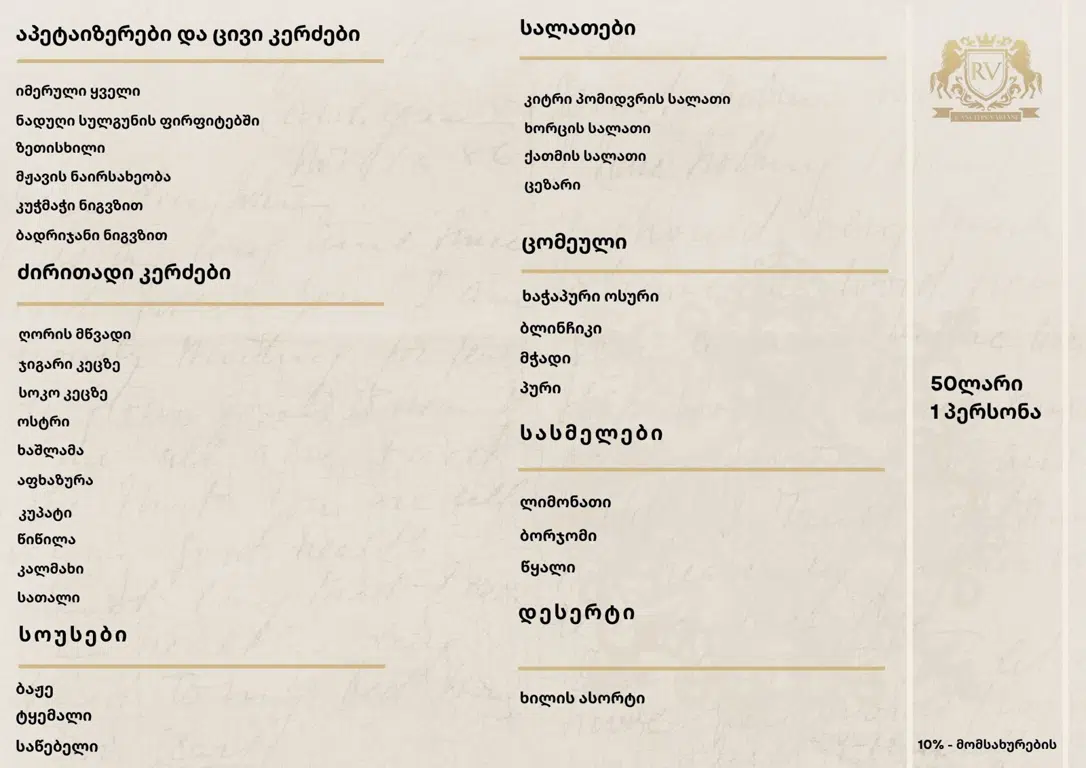 აპეტაიზერები და ცივი კერძები
იმერული ყველი
ნადუღი სულგუნის ფირფიტებში
ზეთისხილი
მჟავის ნაირსახეობა
კუჭმაჭი ნიგვზით
ბადრიჯანი ნიგვზით
ძირითადი კერძები
ღორის მწვადი
ჯიგარი კეცზე
სოკო კეცზე
ოსტრი
ხაშლამა
აფხაზურა
კუპატი
წიწილა
კალმახი
სათალი
სოუსები
ბაჟე
ტყემალი
საწებელი
სალათები
კიტრი პომიდვრის სალათი
ხორცის სალათი
ქათმის სალათი
ცეზარი
ცომეული
ხაჭაპური ოსური
ბლინჩიკი
მჭადი
პური
სასმელები
ლიმონათი
ბორჯომი
წყალი
დესერტი
ხილის ასორტი
RV
50ლარი
1 პერსონა
10% - მომსახურების